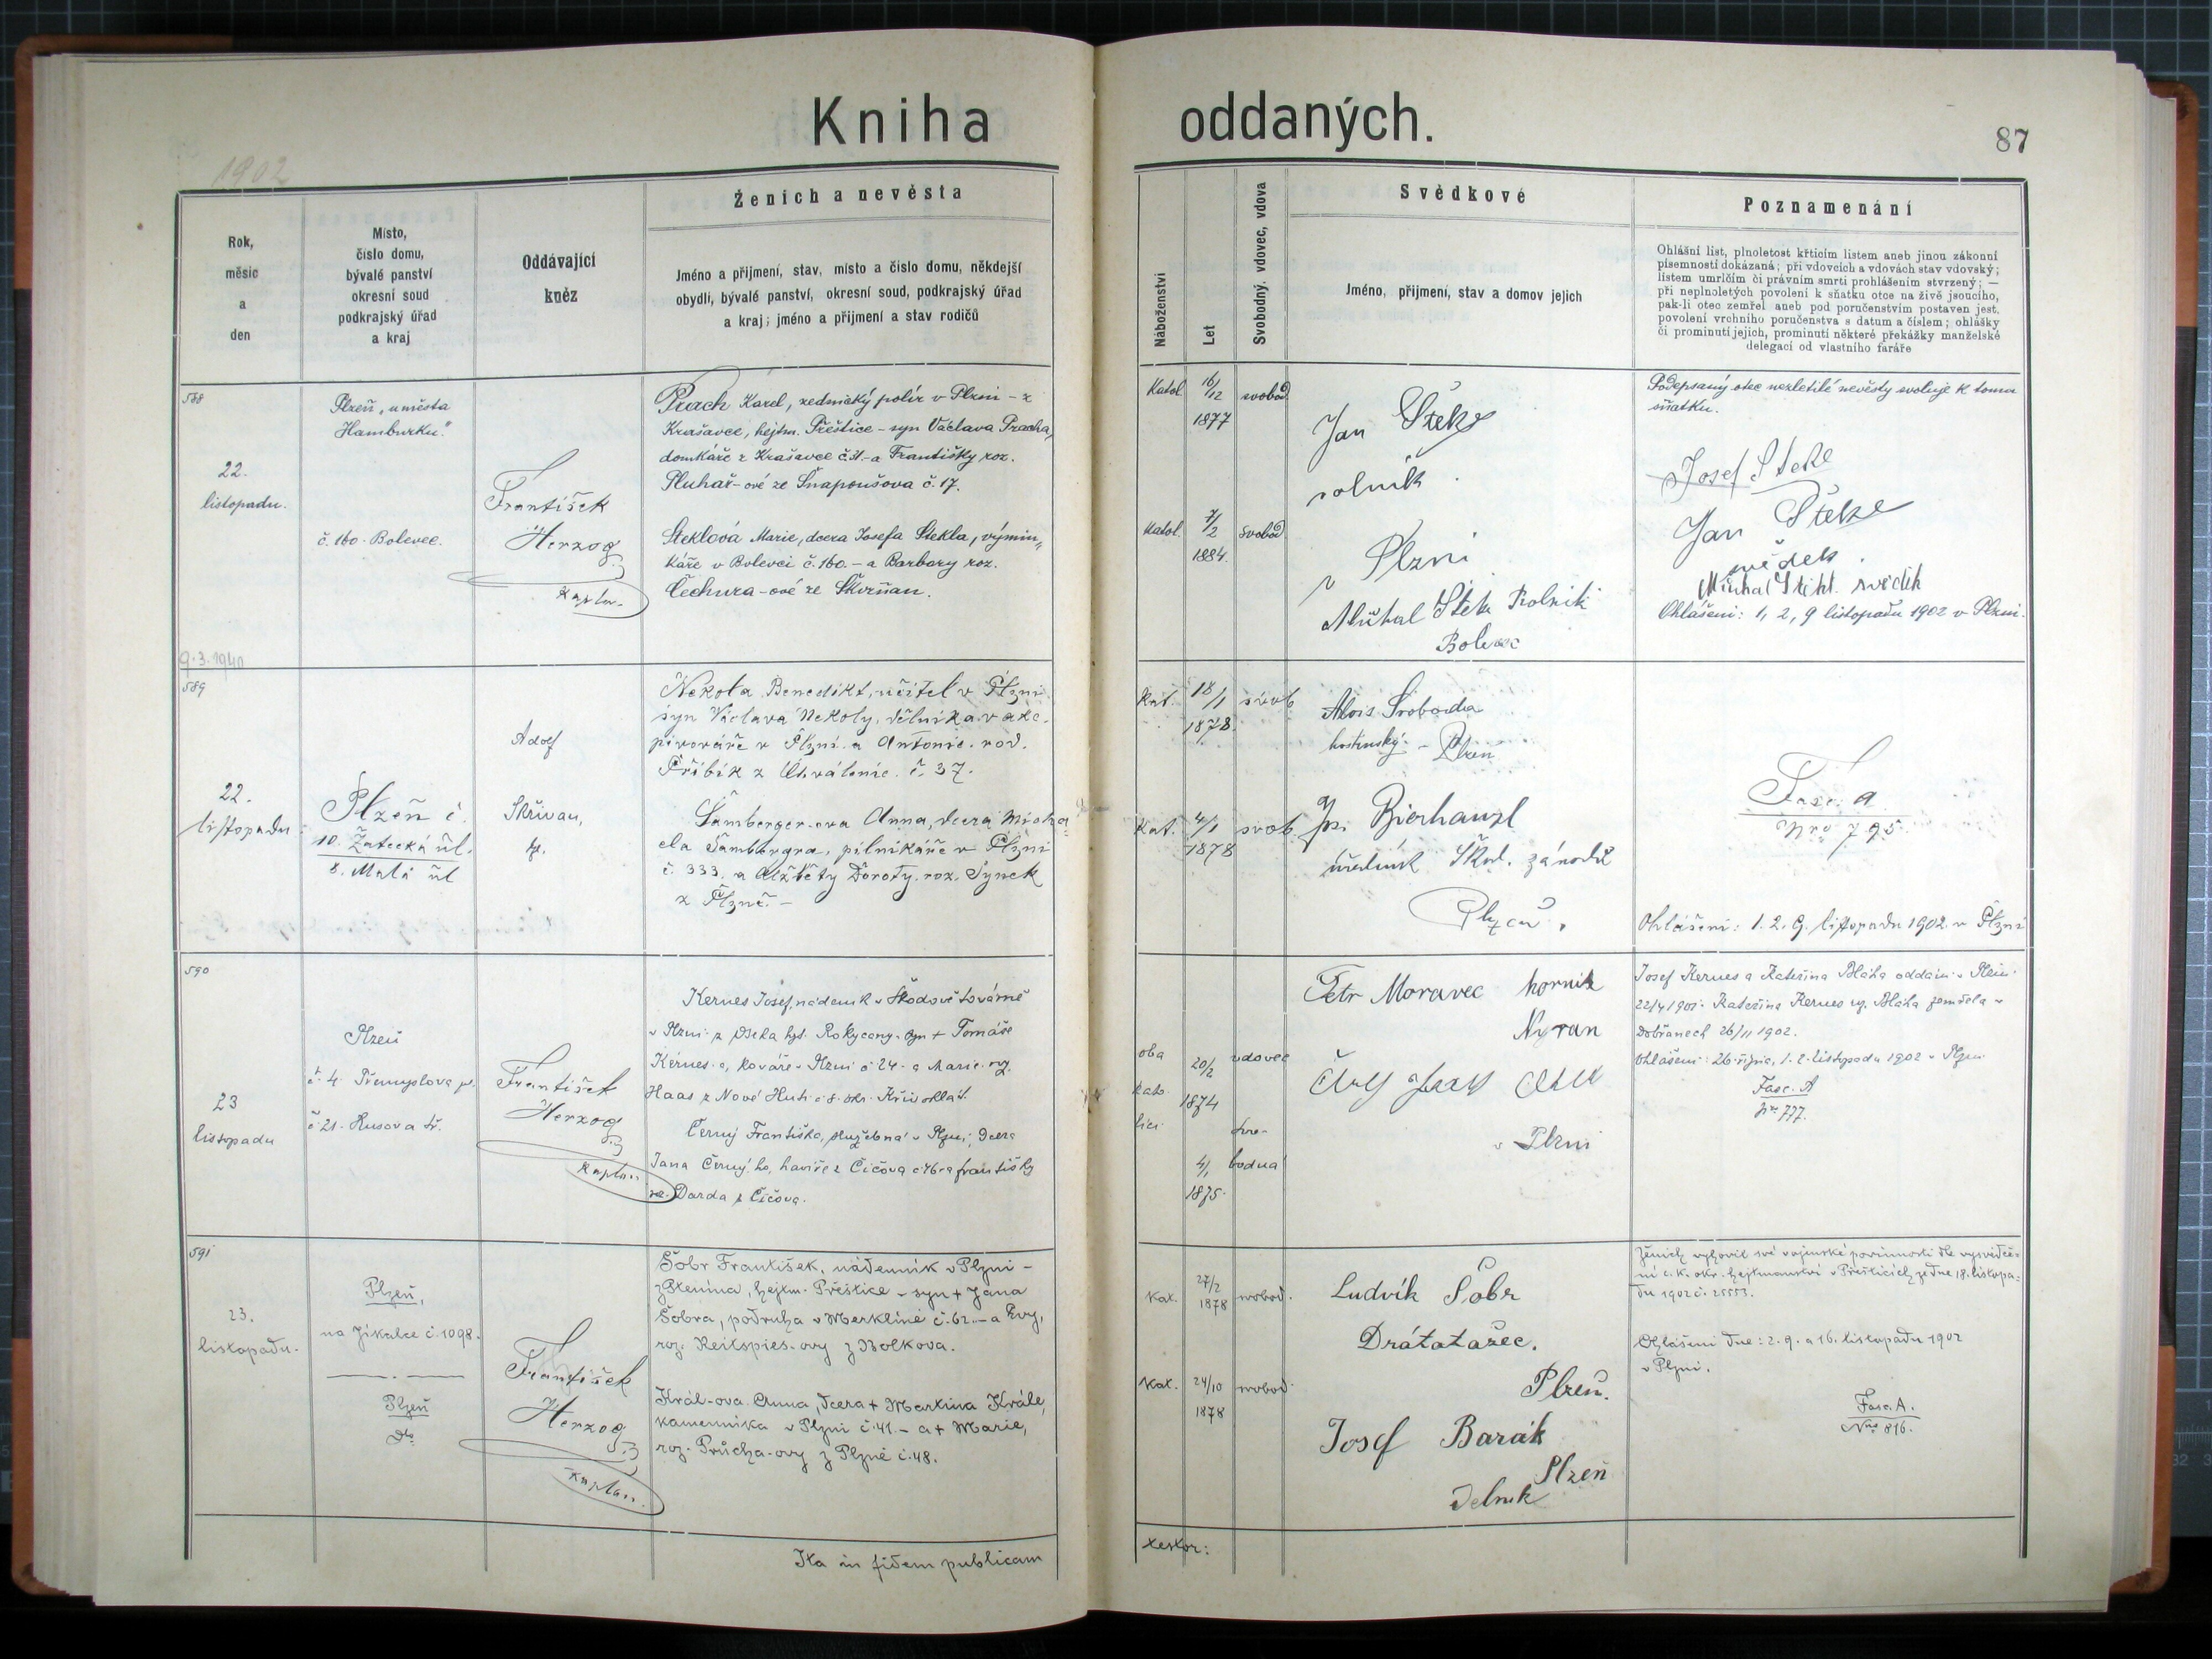 Kniha oddaných.
87
1902
Rok,
měsíc
a
den
Místo,
číslo domu,
bývalé panství
okresní soud
podkrajský úřad
a kraj
Oddávající
kněz
Ženich a nevěsta
Jméno a přijmení, stav, místo a číslo domu, někdejší
obydlí, bývalé panství, okresní soud, podkrajský úřad
a kraj; jméno a přijmení a stav rodičů
Náboženství
Let
Svobodný, vdovec, vdova
Svědkové
Jméno, přijmení, stav a domov jejich
Poznamenání
Ohlášní list, plnoletost křticím listem aneb jinou zákonní
písemností dokázaná; při vdovcích a vdovách stav vdovský;
listem umrlčím či právním smrti prohlášením stvrzený; —
při neplnoletých povolení k sňatku otce na živě jsoucího,
pak-li otec zemřel aneb pod poručenstvím postaven jest.
povolení vrchního poručenstva s datum a číslem; ohlášky
či prominutí jejich, prominutí některé překážky manželské
delegací od vlastního faráře
588
22.
listopadu.
9.3.1940
Plzeň, u města
Hamburku."
č. 160. Bolevec.
František
Herzog
Kaplan.
Prach Karel, zednický polír v Plzni - z
Krašavce, hejtm. Přeštice - syn Václava Pracha,
domkáře z Krašavce č. 31. - a Františky roz.
Pluhař-ové ze Šnapoušova č. 17.
Šteklová Marie, dcera Josefa Štekla, výmin„
káře v Bolevci č. 160. - a Barbory roz.
Čechura-ové ze Škvrňan.
Katol. 16/12 1877 svobod.
Katol. 7/2 1884. svobod
Jan Štekl
rolník
v Plzni
Michal Štekl Rolník
Bolevec
Podepsaný otec nezletilé nevěsty svoluje k tomu
sňatku.
Josef Štekl
Jan Štekl
svědek.
Michal Štekl. svědek
Ohlášení: 1, 2, 9 listopadu 1902 v Plzni.
589
22.
listopadu
Plzeň č.
10. Žatecká ul.
8. Malá ul
Adolf
Skřivan,
Nekola Benedikt, učitel v Plzni
syn Václava Nekoly, dělníka v akc.
pivováře v Plzni a Antonie. rod.
Přibík z Chválenic. č. 37.
Šamberger-ova Anna, dcera Micha
ela Šambergra, pilnikáře v Plzni
č. 333. a Alžběty Doroty. roz. Synek
z Plzně. -
Kat. 18/1 1878. svob
Kat. 4/1 1878 svob
Alois Svoboda
hostinský - Plzeň
Jos. Bierhanzl
úředník Škod. závodů
Plzeň.
Fasc. A
Nro 795
Ohlášení: 1. 2. 9. listopadu 1902. v Plzni
590
23
listopadu
Plzeň
č. 4. Přemyslova
č 21. Husova tř.
František
Herzog
Kaplan.
Kernes Josef, nádeník v Škodově továrně
v Plzni z hejt. Rokycany. syn + Tomáše
Kernes-a, kováře v Plzni č 24. a Marie. roz.
Haas z Nové Huti č 8. okr. Křivoklát.
Černý Františka, služebná v Plzni, dcera
Jana Černý-ho, havíře z Čičova č 46 a Františky
roz. Darda z Čičova.
oba
kato
líci
20/2 1874
vdovec
4/1 1875.
svo-
bodná
Petr Moravec horník
Nyran
v Plzni
Josef Kernes a Kateřina Bláha oddáni v Plzni
22/4 1901. Kateřina Kernes roz. Bláha zemřela v
Dobřanech 26/11 1902.
Ohlášení: 26. října, 1. 2. listopadu 1902 v Plzni
Fasc. A
Nro 777.
591
23.
listopadu.
Plzeň,
na Jikalce č. 1098.
Plzeň
dto
František
Herzog
Kaplan.
Šobr František, nádenník v Plzni -
z Ptenína, hejtm. Přeštice - syn + Jana
Šobra, podruha v Merklíně č. 62. - a Evy,
roz. Reitspies-ovy z Bolkova.
Král-ova Anna, dcera + Martina Krále,
kamenníka v Plzni č. 41. - a + Marie,
roz. Průcha-ovy z Plzně č. 48.
Kat. 27/2 1878 svobod.
Kat. 24/10 1878 svobod.
Ludvík Šobr
Drátatařec.
Plzeň.
Josef Barák
Plzeň
Delník
Ženich vyhověl své vojenské povinnosti dle vysvědče=
ní c. k. okr. hejtmanství v Přešticích ze dne 18. listopa=
du 1902 č. 25553.
Ohlášeni dne: 2. 9. a 16. listopadu 1902
v Plzni.
Fasc. A.
Nro 816.
Ita in fidem publicam
testor: